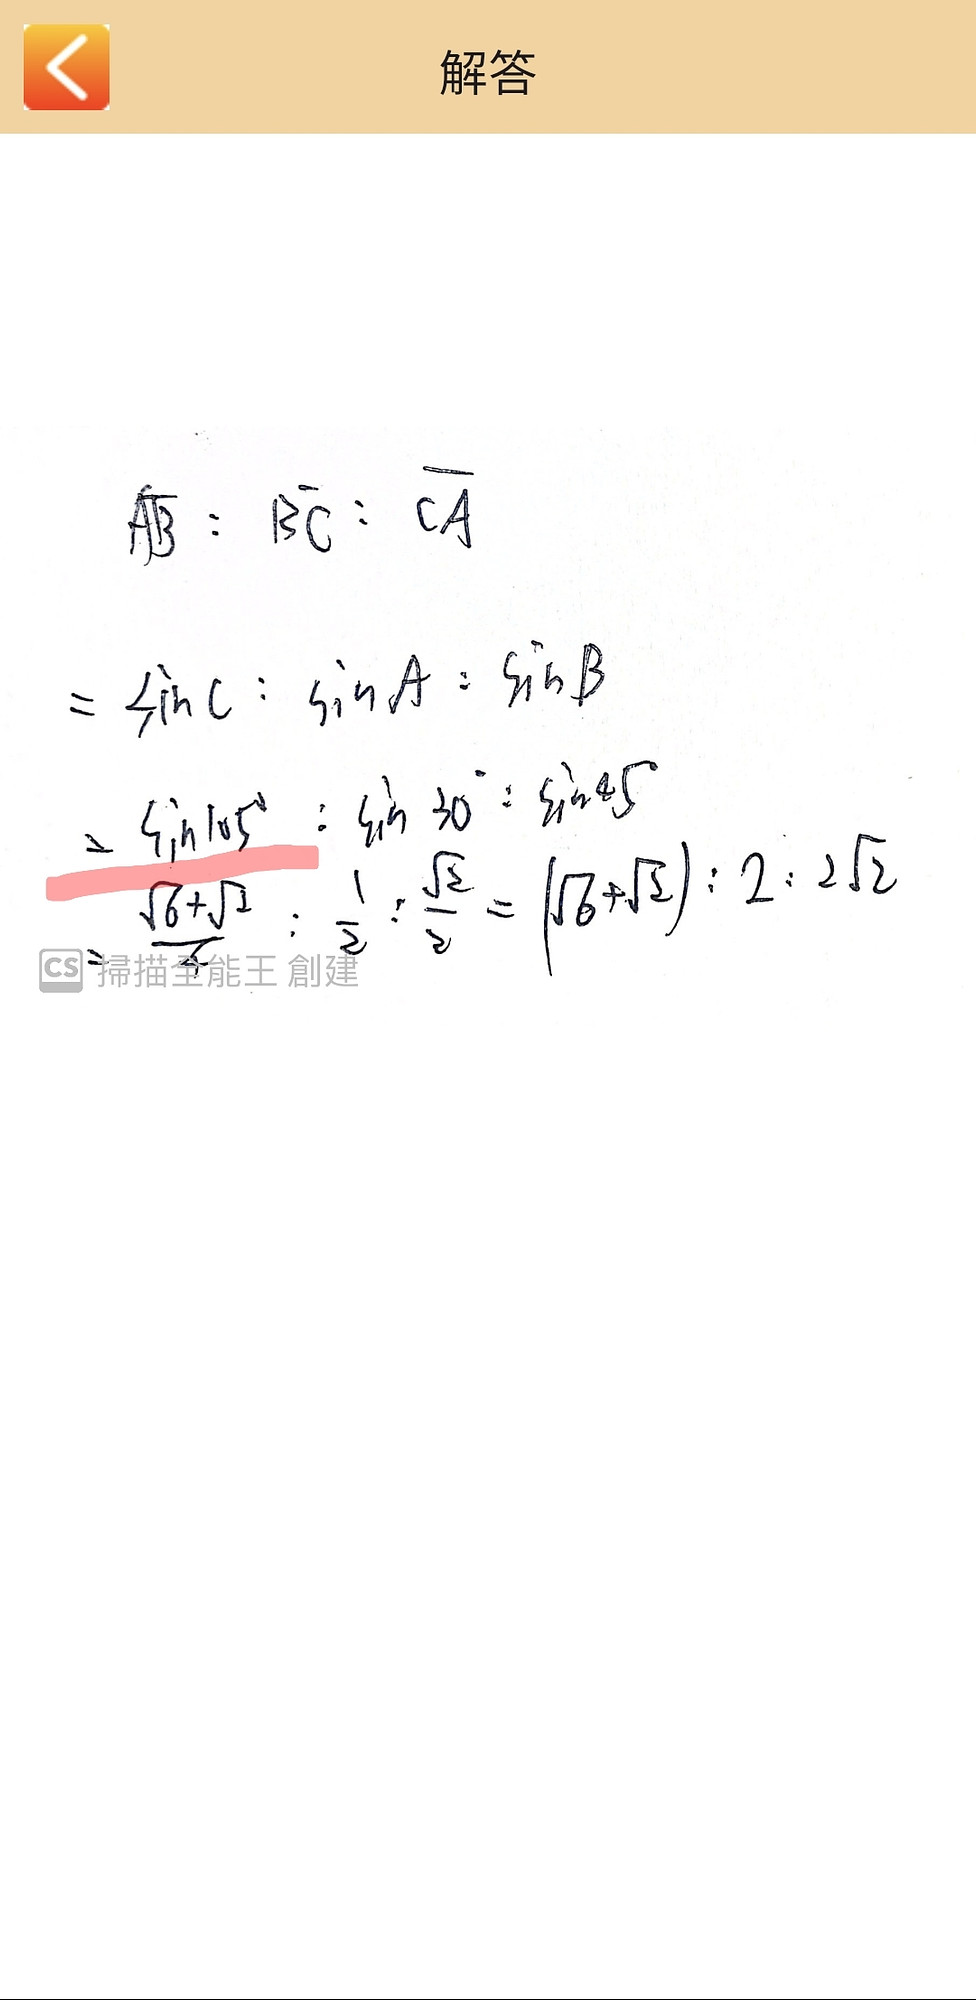 解答
AB : BC : CA
= sinC : sinA : sinB
= sin105° : sin30° : sin45°
= (√6+√2)/4 : 1/2 : √2/2 = (√6+√2) : 2 : 2√2
CS 掃描全能王 創建